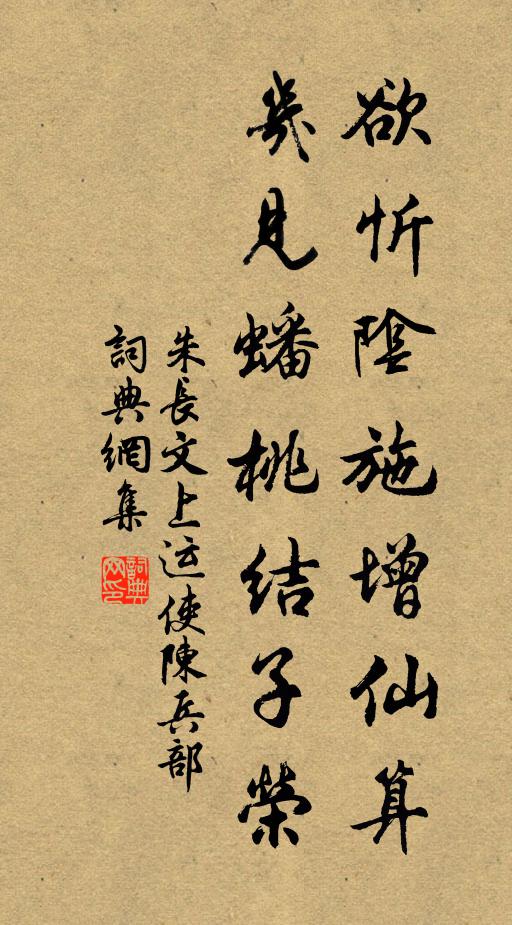 欲忻陰施增仙算
幾見蟠桃結子榮
朱長文上运使陳兵部
詞典網集
詞典网印